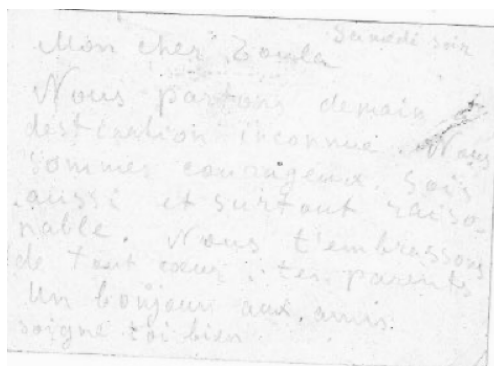 Samedi soir
Mon cher Zoula
Nous partons demain
destination inconnue. Nous
sommes courageux. Sois
aussi et surtout raiso-
nable. Nous t'embrassons
de tout cœur. tes parents
Un bonjour aux amis
soigne toi bien.